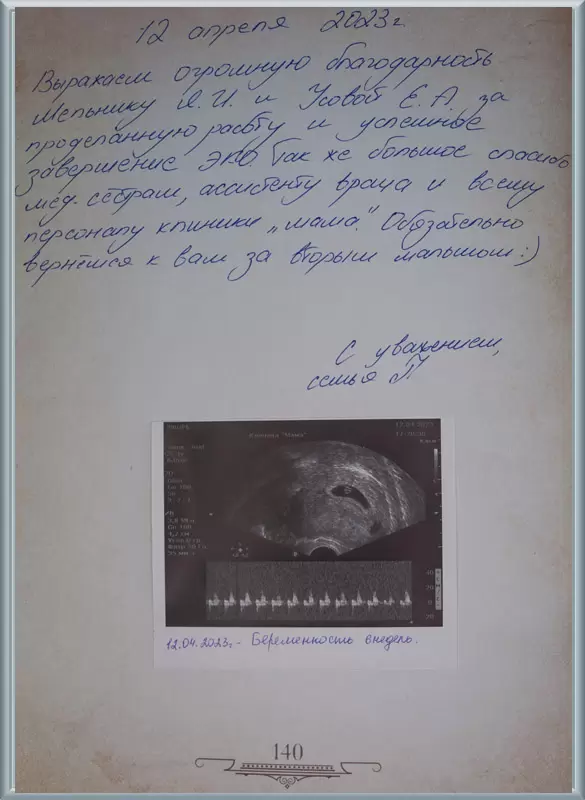 12 апреля 2023г.
Выражаем огромную благодарность
Мельнику Я.И. и Усовой Е.А. за
проделанную работу и успешное
завершение ЭКО. Так же большое спасибо
мед. сёстрам, ассистенту врача и всему
персоналу клиники „мама". Обязательно
вернёмся к вам за вторым малышом :)
С уважением,
семья П
Клиника "Мама"
12.04.2023г. - Беременность 6 недель.
140